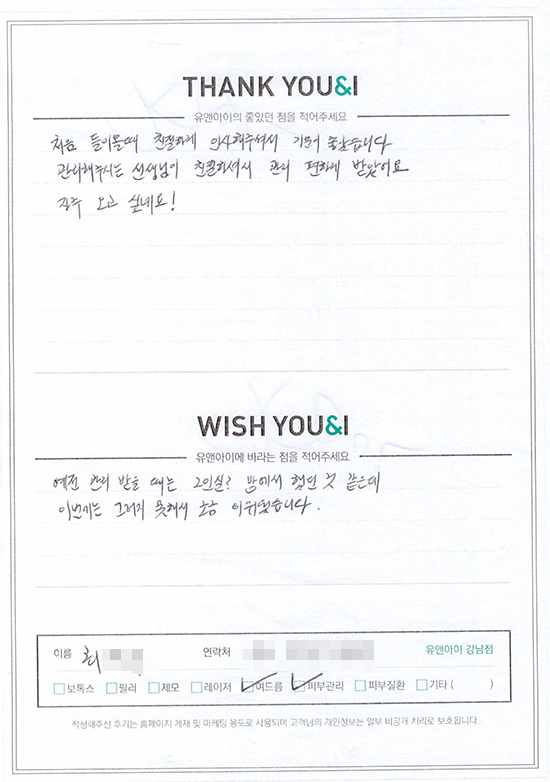 THANK YOU&I
유앤아이의 좋았던 점을 적어주세요
처음 들어올때 친절하게 인사해주셔서 기분이 좋았습니다
관리해주시는 선생님이 친절하셔서 관리 편하게 받았어요
자주 오고 싶네요!
WISH YOU&I
유앤아이에 바라는 점을 적어주세요
예전 관리 받을 때는 2인실? 방에서 했던 것 같은데
이번에는 그러지 못해서 조금 아쉬웠습니다.
이름 최 연락처 유앤아이 강남점
보톡스 필러 제모 레이저 여드름 피부관리 피부질환 기타 ( )
작성해주신 후기는 홈페이지 게재 및 마케팅 용도로 사용되며 고객님의 개인정보는 일부 비공개 처리로 보호됩니다.